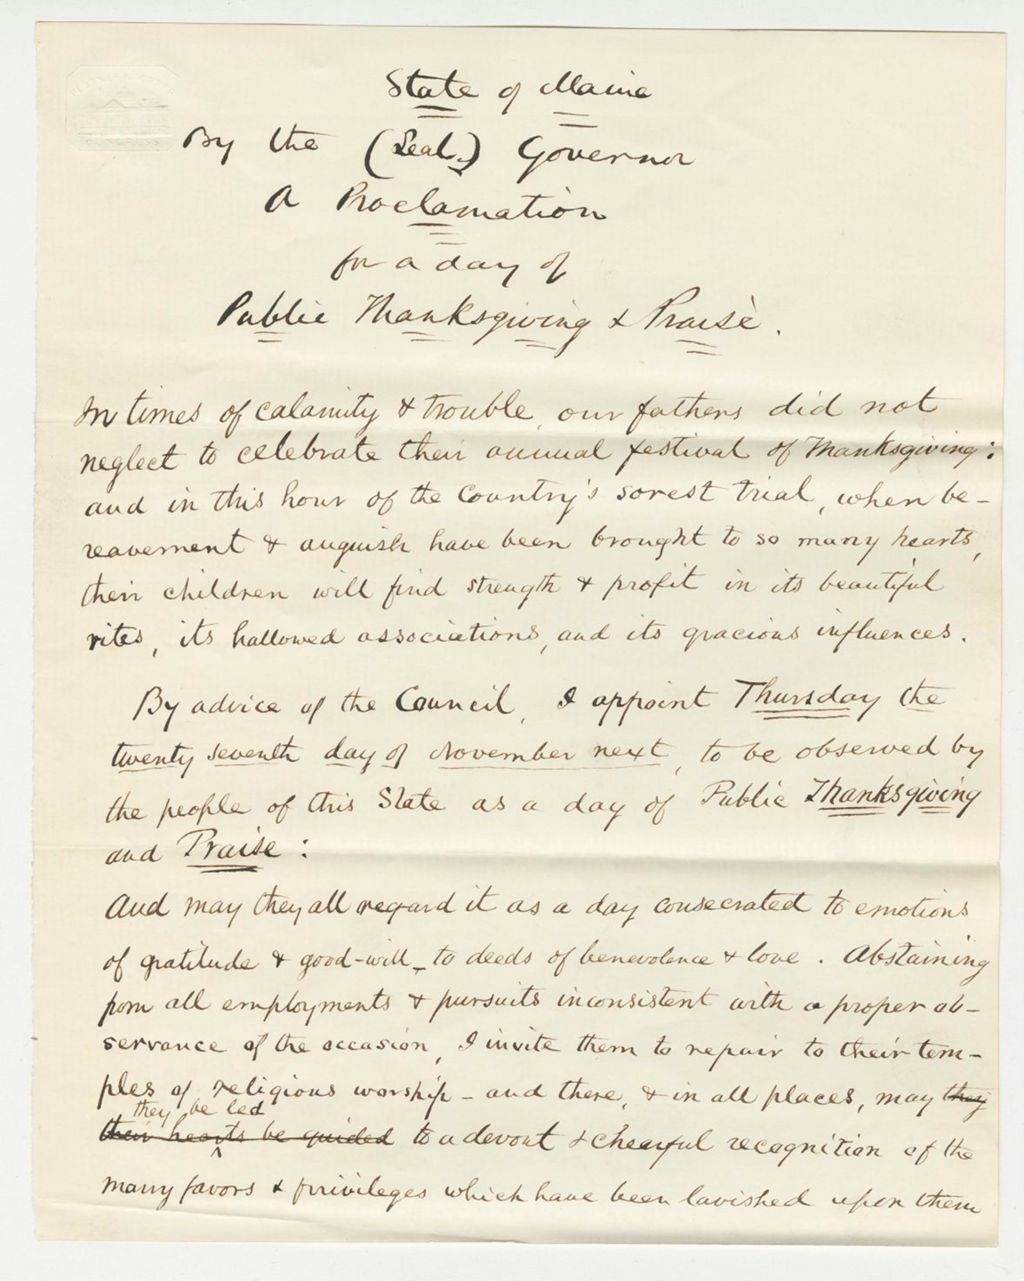 State of Maine
By the (Seal.) Governor
A Proclamation
for a day of
Public Thanksgiving & Praise.
In times of calamity & trouble, our fathers did not
neglect to celebrate their annual festival of Thanksgiving:
and in this hour of the Country's sorest trial, when be-
reavement & anguish have been brought to so many hearts,
their children will find strength & profit in its beautiful
rites, its hallowed associations, and its gracious influences.
By advice of the Council, I appoint Thursday the
twenty seventh day of November next, to be observed by
the people of this State as a day of Public Thanksgiving
and Praise:
And may they all regard it as a day consecrated to emotions
of gratitude & good-will - to deeds of benevolence & love. Abstaining
from all employments & pursuits inconsistent with a proper ob-
servance of the occasion, I invite them to repair to their tem-
ples of religious worship - and there, & in all places, may they
they be led
their hearts be guided to a devout & cheerful recognition of the
many favors & privileges which have been lavished upon them